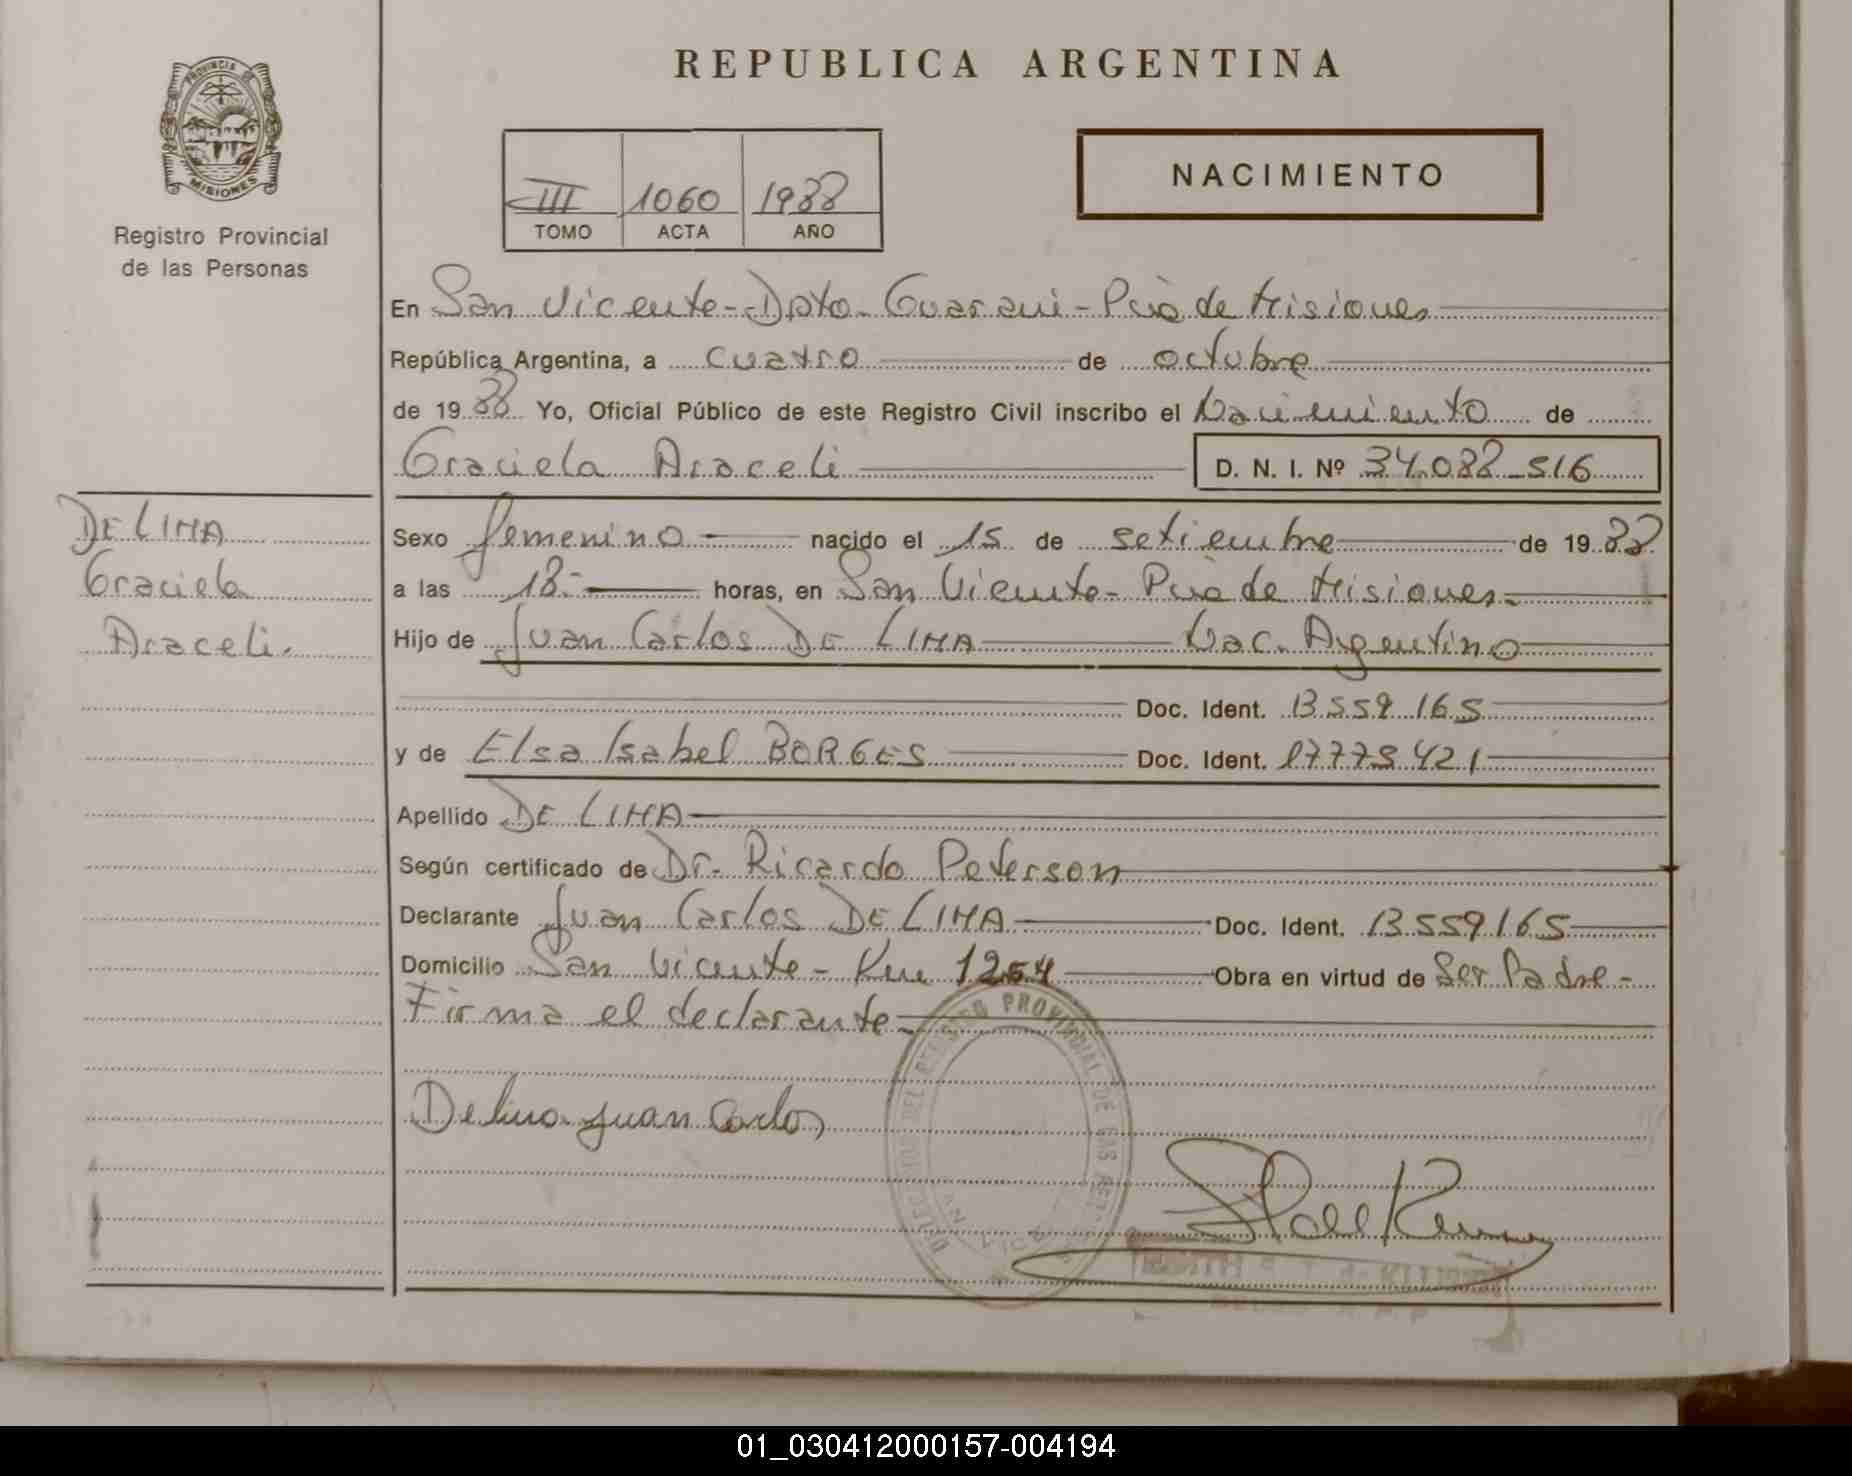 REPUBLICA ARGENTINA
PROVINCIA DE
MISIONES
Registro Provincial
de las Personas
III 1060 1988
TOMO ACTA AÑO
NACIMIENTO
En San Vicente - Dpto. Guarani - Pcia de Misiones
República Argentina, a cuatro de octubre
de 1988 Yo, Oficial Público de este Registro Civil inscribo el Nacimiento de
Graciela Araceli D. N. I. Nº 34.088.516
DE LIMA
Graciela
Araceli.
Sexo femenino nacido el 15 de setiembre de 1988
a las 18.- horas, en San Vicente - Pcia de Misiones.-
Hijo de Juan Carlos DE LIMA Nac. Argentino
Doc. Ident. 13559165
y de Elsa Isabel BORGES Doc. Ident. 17775421
Apellido DE LIMA
Según certificado de Dr. Ricardo Peterson
Declarante Juan Carlos DE LIMA Doc. Ident. 13559165
Domicilio San Vicente - Km 1254 Obra en virtud de Ser Padre -
Firma el declarante -
De lima juan Carlos
01_030412000157-004194